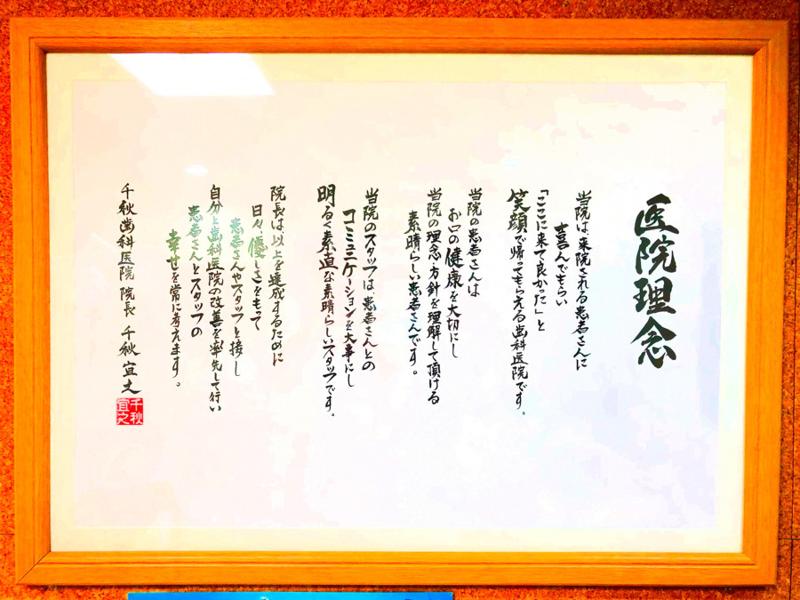 医院理念
当院は、来院される患者さんに
喜んでもらい
「ここに来て良かった」と
笑顔で帰ってもらえる歯科医院です。
当院の患者さんは
お口の健康を大切にし
当院の理念・方針を理解して頂ける
素晴らしい患者さんです。
当院のスタッフは、患者さんとの
コミュニケーションを大事にし
明るく素直な素晴らしいスタッフです。
院長は、以上を達成するために
日々、優しさをもって
患者さんやスタッフと接し
自分と歯科医院の改善を率先して行い
患者さんとスタッフの
幸せを常に考えます。
千秋歯科医院 院長 千秋宜之
千秋宜之